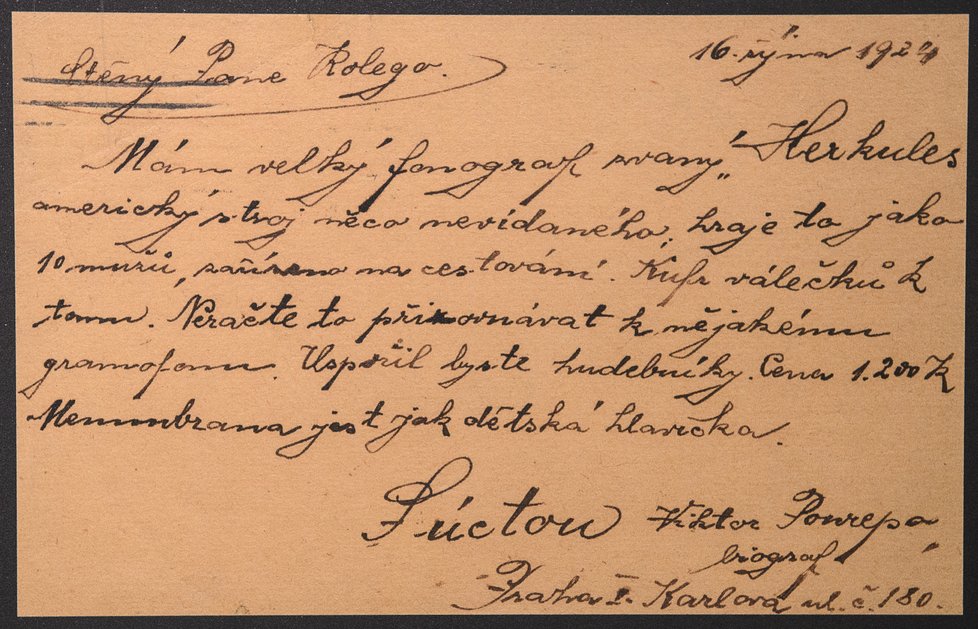 Ctěný Pane Kolego.
16. října 1924
Mám velký fonograf zvaný „Herkules
americký stroj něco nevídaného, hraje to jako
10 mužů, zařízeno na cestování. Kufr válečků k
tomu. Neračte to přirovnávat k nějakému
gramofonu. Uspořil byste hudebníky. Cena 1.200 K
Memmbrana jest jak dětská hlavička.
S úctou Viktor Ponrepo
biograf
Praha I. Karlová ul. č. 180.